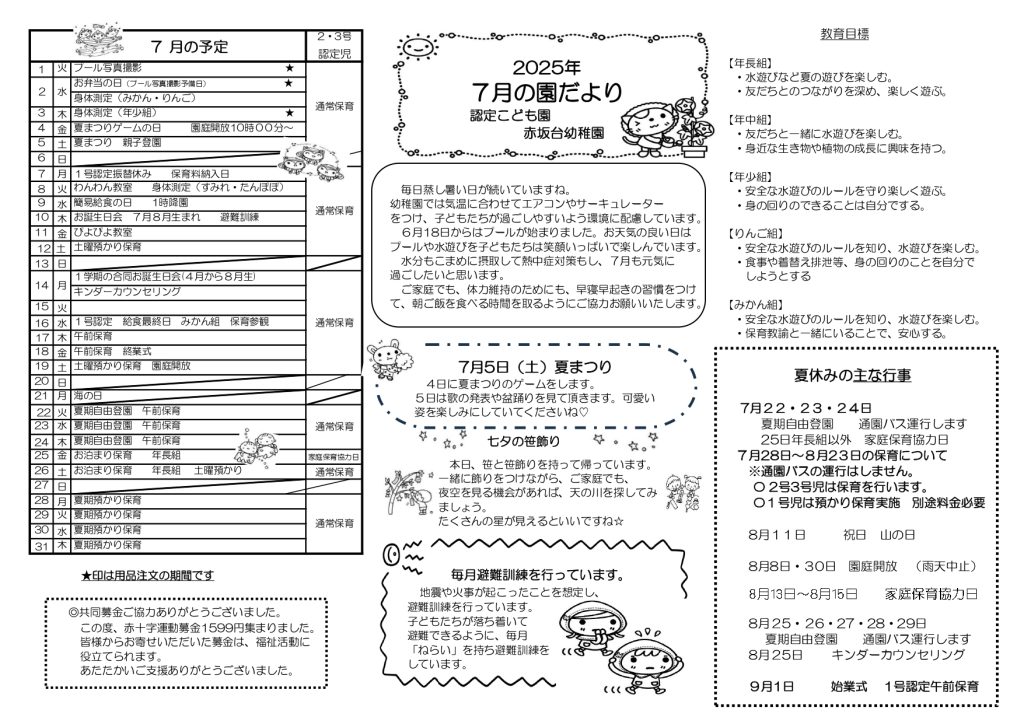 ７月の予定
２・３号
認定児
1 火 プール写真撮影 ★
2 水 お弁当の日（プール写真撮影予備日） ★
身体測定（みかん・りんご）
通常保育
3 木 身体測定（年少組） ★
4 金 夏まつりゲームの日 園庭開放10時００分～
5 土 夏まつり 親子登園
6 日
7 月 １号認定振替休み 保育料納入日
8 火 わんわん教室 身体測定（すみれ・たんぽぽ）
9 水 簡易給食の日 1時降園
通常保育
10 木 お誕生日会 ７月８月生まれ 避難訓練
11 金 ぴよぴよ教室
12 土 土曜預かり保育
13 日
14 月 １学期の合同お誕生日会(４月から８月生)
キンダーカウンセリング
15 火
16 水 １号認定 給食最終日 みかん組 保育参観
通常保育
17 木 午前保育
18 金 午前保育 終業式
19 土 土曜預かり保育 園庭開放
20 日
21 月 海の日
22 火 夏期自由登園 午前保育
23 水 夏期自由登園 午前保育
通常保育
24 木 夏期自由登園 午前保育
25 金 お泊まり保育 年長組 家庭保育協力日
26 土 お泊まり保育 年長組 土曜預かり 通常保育
27 日
28 月 夏期預かり保育
29 火 夏期預かり保育
通常保育
30 水 夏期預かり保育
31 木 夏期預かり保育
★印は用品注文の期間です
◎共同募金ご協力ありがとうございました。
この度、赤十字運動募金1599円集まりました。
皆様からお寄せいただいた募金は、福祉活動に
役立てられます。
あたたかいご支援ありがとうございました。
2025年
７月の園だより
認定こども園
赤坂台幼稚園
毎日蒸し暑い日が続いていますね。
幼稚園では気温に合わせてエアコンやサーキュレーター
をつけ、子どもたちが過ごしやすいよう環境に配慮しています。
６月18日からはプールが始まりました。お天気の良い日は
プールや水遊びを子どもたちは笑顔いっぱいで楽しんでいます。
水分もこまめに摂取して熱中症対策もし、７月も元気に
過ごしたいと思います。
ご家庭でも、体力維持のためにも、早寝早起きの習慣をつけ
て、朝ご飯を食べる時間を取るようにご協力お願いいたします。
７月５日（土）夏まつり
４日に夏まつりのゲームをします。
５日は歌の発表や盆踊りを見て頂きます。可愛い
姿を楽しみにしていてくださいね♡
七夕の笹飾り
本日、笹と笹飾りを持って帰っています。
一緒に飾りをつけながら、ご家庭でも、
夜空を見る機会があれば、天の川を探してみ
ましょう。
たくさんの星が見えるといいですね☆
毎月避難訓練を行っています。
地震や火事が起こったことを想定し、
避難訓練を行っています。
子どもたちが落ち着いて
避難できるように、毎月
「ねらい」を持ち避難訓練を
しています。
教育目標
【年長組】
・水遊びなど夏の遊びを楽しむ。
・友だちとのつながりを深め、楽しく遊ぶ。
【年中組】
・友だちと一緒に水遊びを楽しむ。
・身近な生き物や植物の成長に興味を持つ。
【年少組】
・安全な水遊びのルールを守り楽しく遊ぶ。
・身の回りのできることは自分でする。
【りんご組】
・安全な水遊びのルールを知り、水遊びを楽しむ。
・食事や着替え排泄等、身の回りのことを自分で
しようとする
【みかん組】
・安全な水遊びのルールを知り、水遊びを楽しむ。
・保育教諭と一緒にいることで、安心する。
夏休みの主な行事
７月２２・２３・２４日
夏期自由登園 通園バス運行します
２５日年長組以外 家庭保育協力日
７月２８日～８月２３日の保育について
※通園バスの運行はしません。
〇２号３号児は保育を行います。
〇１号児は預かり保育実施 別途料金必要
８月１１日 祝日 山の日
８月８日・３０日 園庭開放 （雨天中止）
８月１３日～８月１５日 家庭保育協力日
８月２５・２６・２７・２８・２９日
夏期自由登園 通園バス運行します
８月２５日 キンダーカウンセリング
９月１日 始業式 １号認定午前保育